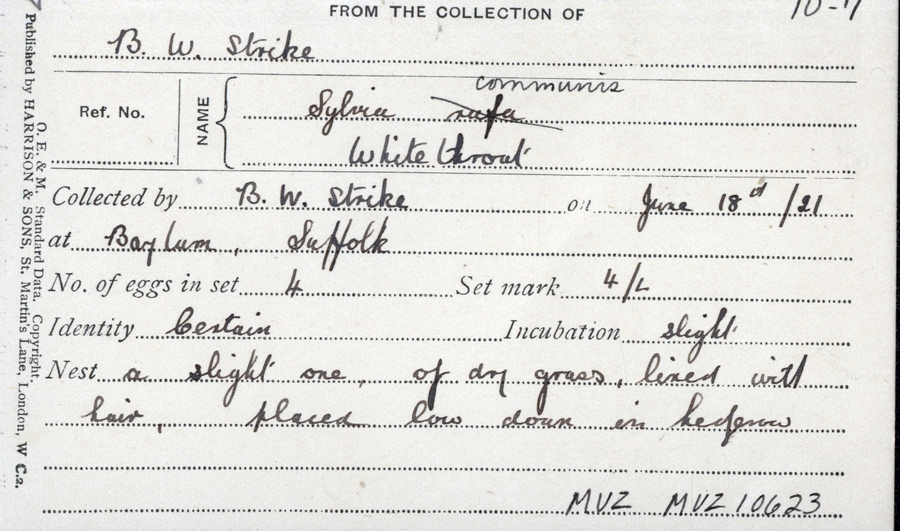 FROM THE COLLECTION OF
B. W. Strike
communis
Ref. No. NAME Sylvia rufa
White throat
Collected by B. W. Strike on June 18 /21
at Suffolk
No. of eggs in set 4 Set mark 4/L
Identity Certain Incubation slight
Nest a slight one, of dry grass, lined with
hair, placed low down in hedgerow
MVZ MVZ 10623
O. E. & M. Standard Data. Copyright.
Published by HARRISON & SONS, St. Martin's Lane, London, W C.2.